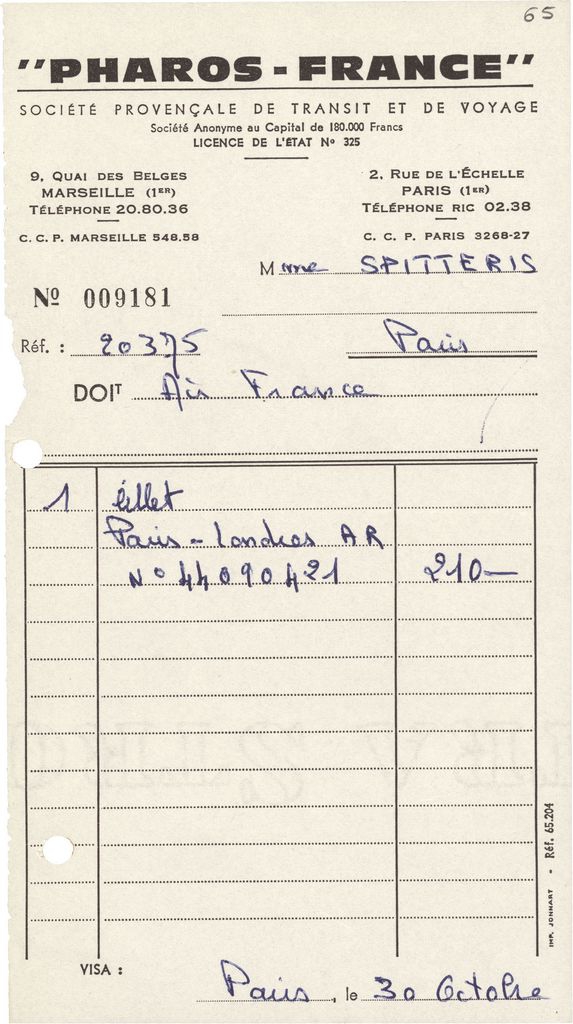 65
"PHAROS - FRANCE"
SOCIÉTÉ PROVENÇALE DE TRANSIT ET DE VOYAGE
Société Anonyme au Capital de 180.000 Francs
LICENCE DE L'ÉTAT Nº 325
9, QUAI DES BELGES
MARSEILLE (1ER)
TÉLÉPHONE 20.80.36
C. C. P. MARSEILLE 548.58
2, RUE DE L'ÉCHELLE
PARIS (1ER)
TÉLÉPHONE RIC 02.38
C. C. P. PARIS 3268-27
Mme SPITTERIS
Nº 009181
Réf. : 20375
Paris
DOIT Air France
1 billet
Paris - Londres AR
Nº 44090421 210—
IMP. JONHART - Réf. 65.204
VISA :
Paris, le 30 Octobre